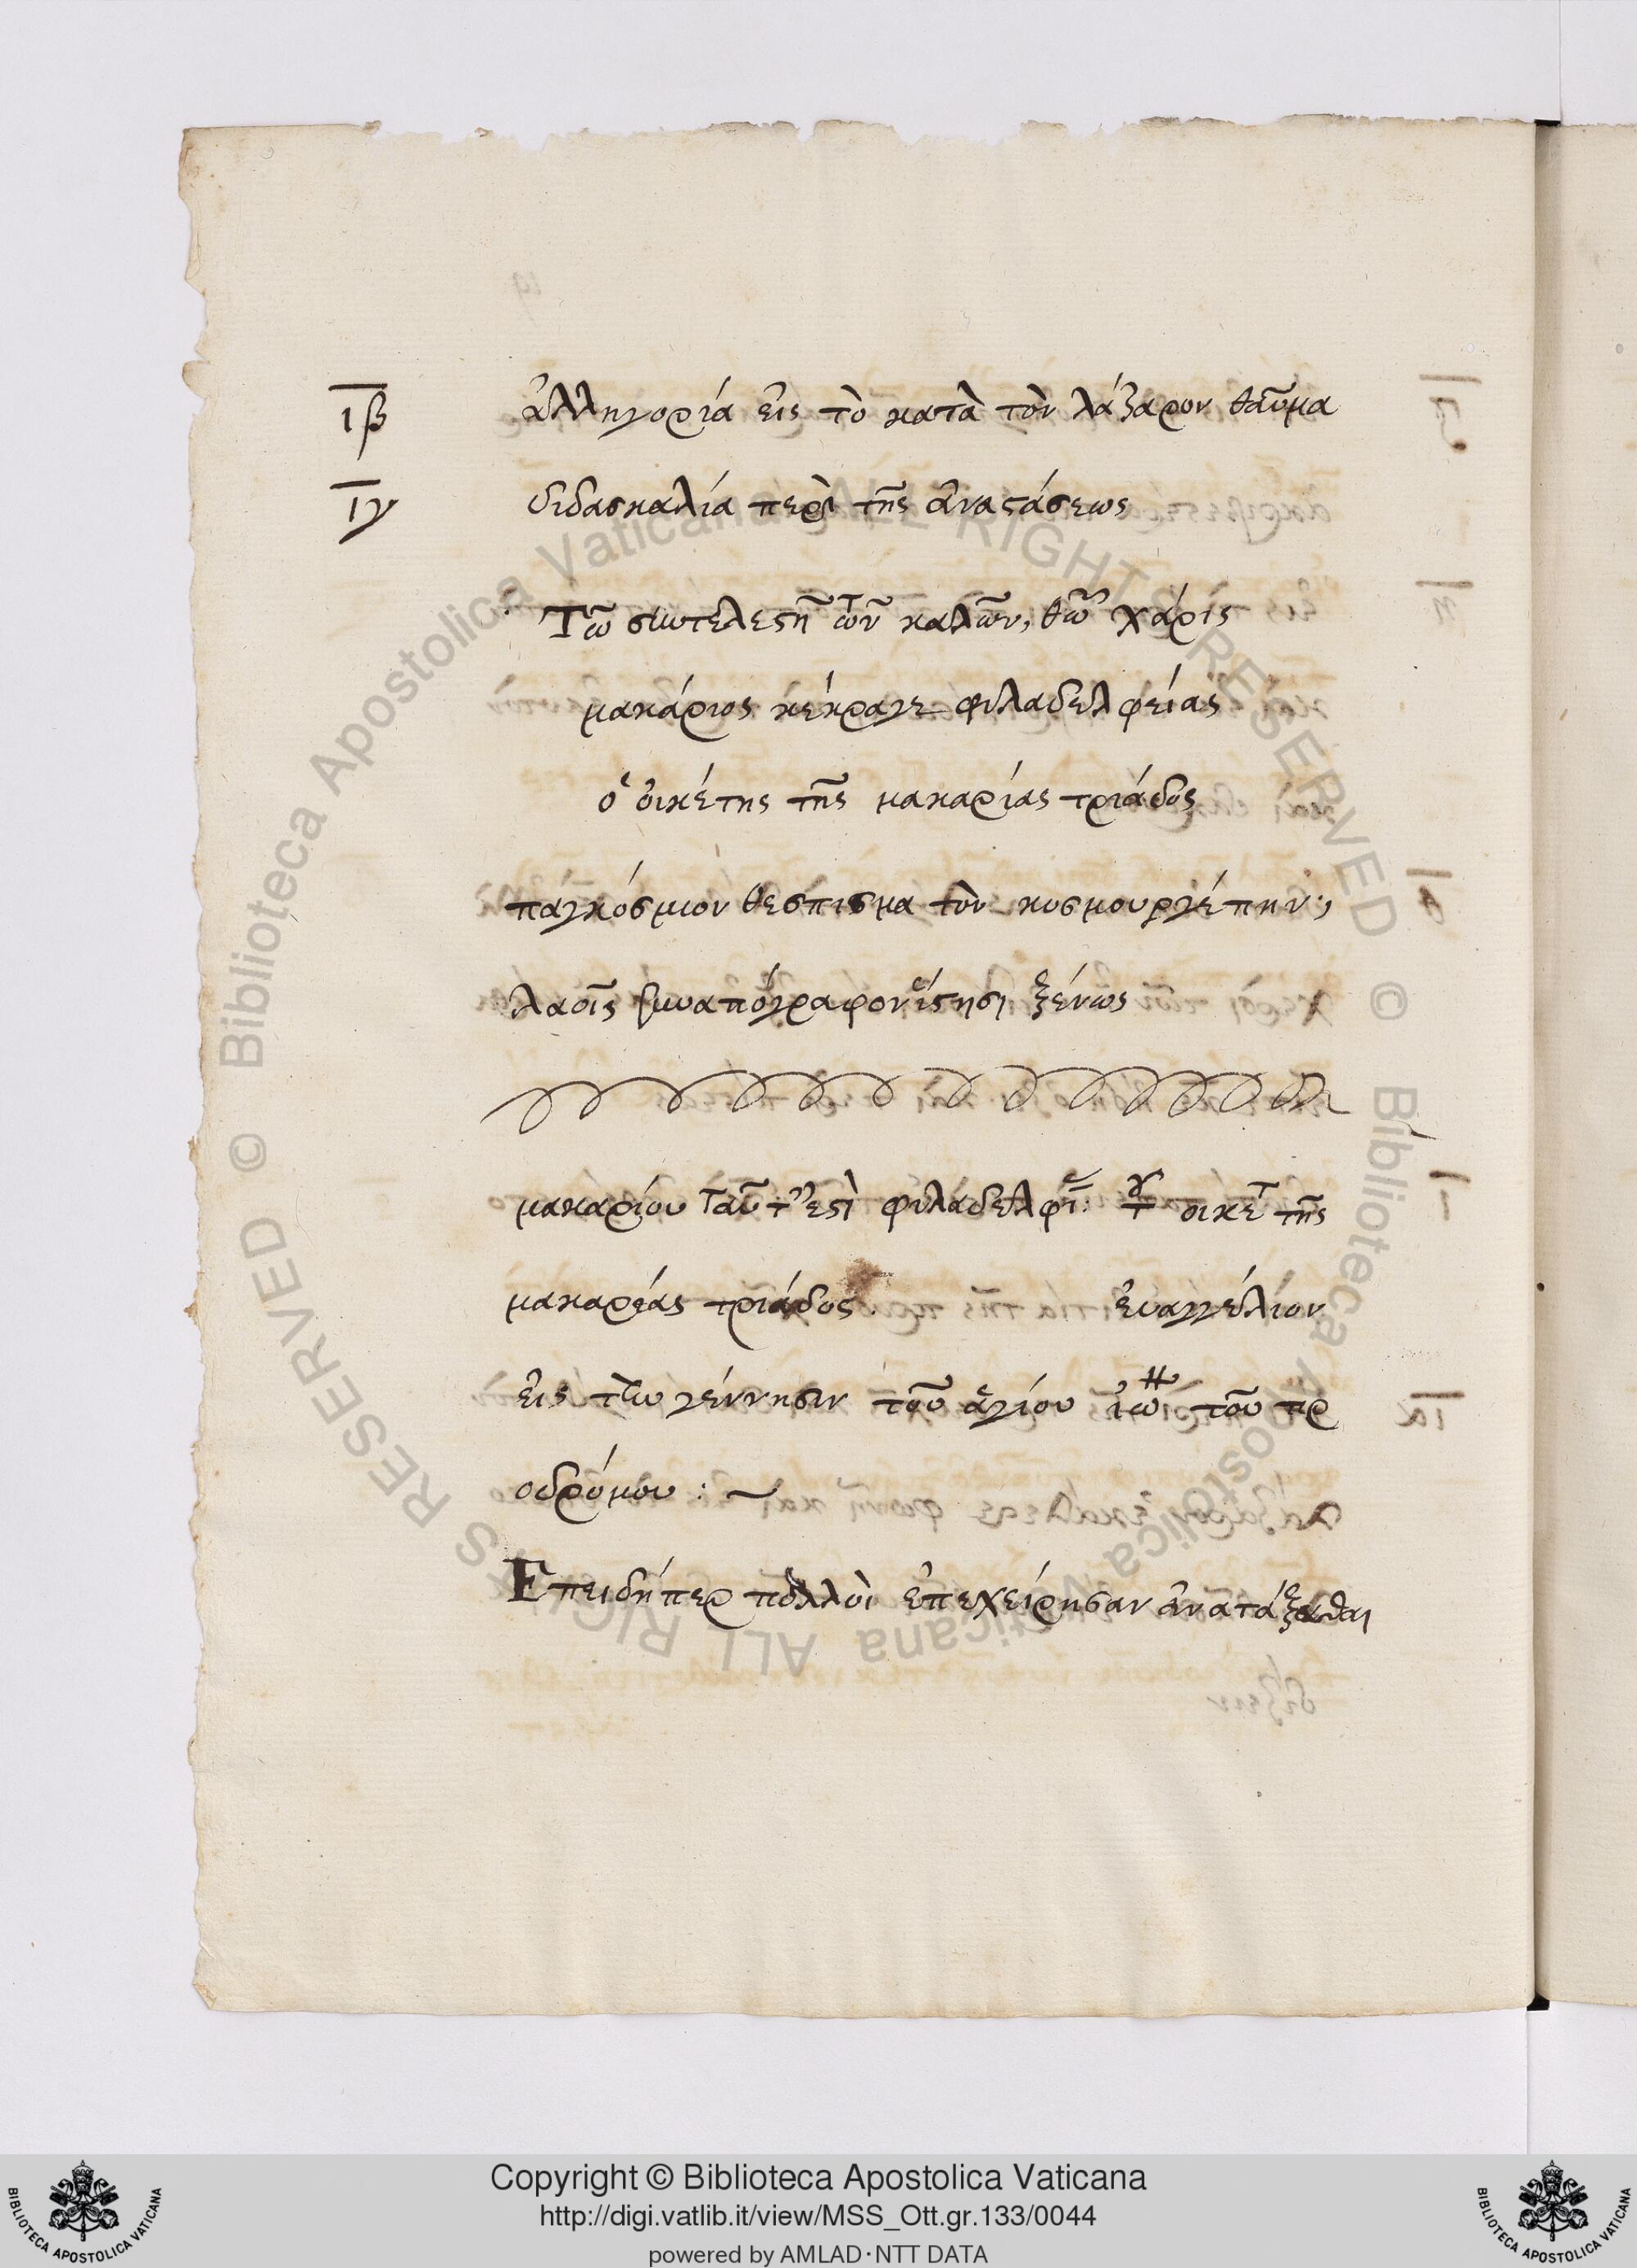 ιβ ἀλληγορία εἰς τὸ κατὰ τὸν λάζαρον θαῦμα
ιγ διδασκαλία περὶ τῆς ἀναςάσεως
Τῶ συντελεςῆ τῶν καλῶν, θῶ χάρις
μακάριος κέκραγε φιλαδελφείας
ὁ οἰκέτης τῆς μακαρίας τριάδος
παγκόσμιον θέσπισμα τὸν κοσμουργέτην,
λαοῖς ἐναπόγραφον ἵςησι ξένως
μακαρίου ἐςὶ φιλαδελφ οικετ τῆς
μακαρίας τριάδος εὐαγγέλιον
εἰς τὴν γέννησιν τοῦ ἁγίου ἰω τοῦ πρ
οδρόμου :~
Ἐπειδήπερ πολλοὶ ἐπεχείρησαν ἀνατάξασθαι
Copyright © Biblioteca Apostolica Vaticana
http://digi.vatlib.it/view/MSS_Ott.gr.133/0044
powered by AMLAD·NTT DATA
BIBLIOTECA APOSTOLICA VATICANA
BIBLIOTECA APOSTOLICA VATICANA
© Biblioteca Apostolica Vaticana ALL RIGHTS RESERVED © Biblioteca Apostolica Vaticana ALL RIGHTS RESERVED